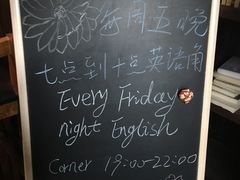 每周五晚
七点到十点英语角
Every Friday
night English
Corner 19:00-22:00